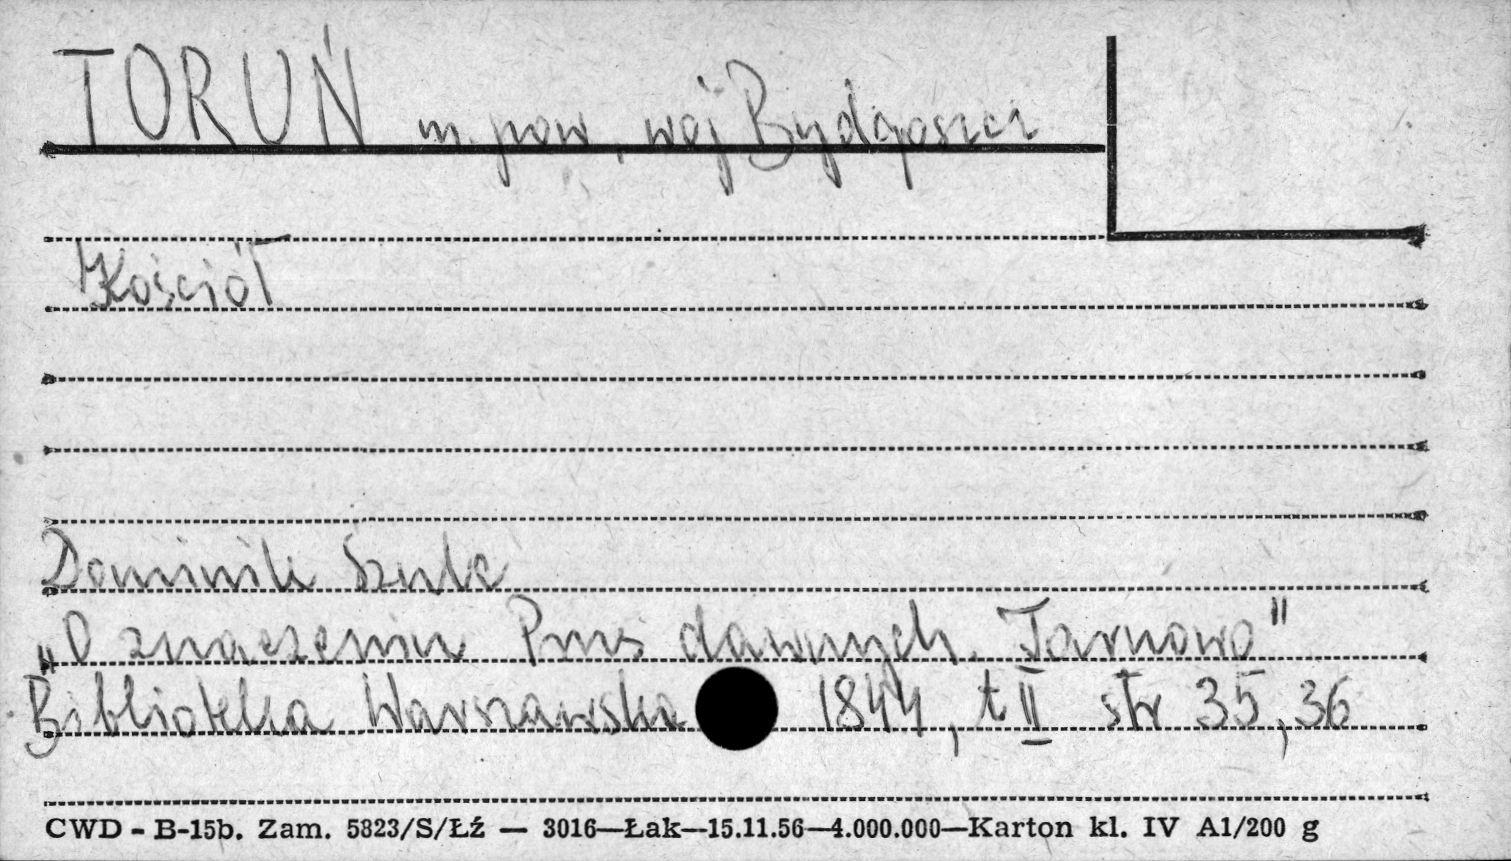 TORUŃ m. pow., woj Bydgoszcz
Kościół
Dominik Szulc
„O znaczeniu Prus dawnych. Tarnowo"
Biblioteka Warszawska 1844, t II str 35, 36
CWD - B-15b. Zam. 5823/S/Łź — 3016—Łak—15.11.56—4.000.000—Karton kl. IV A1/200 g